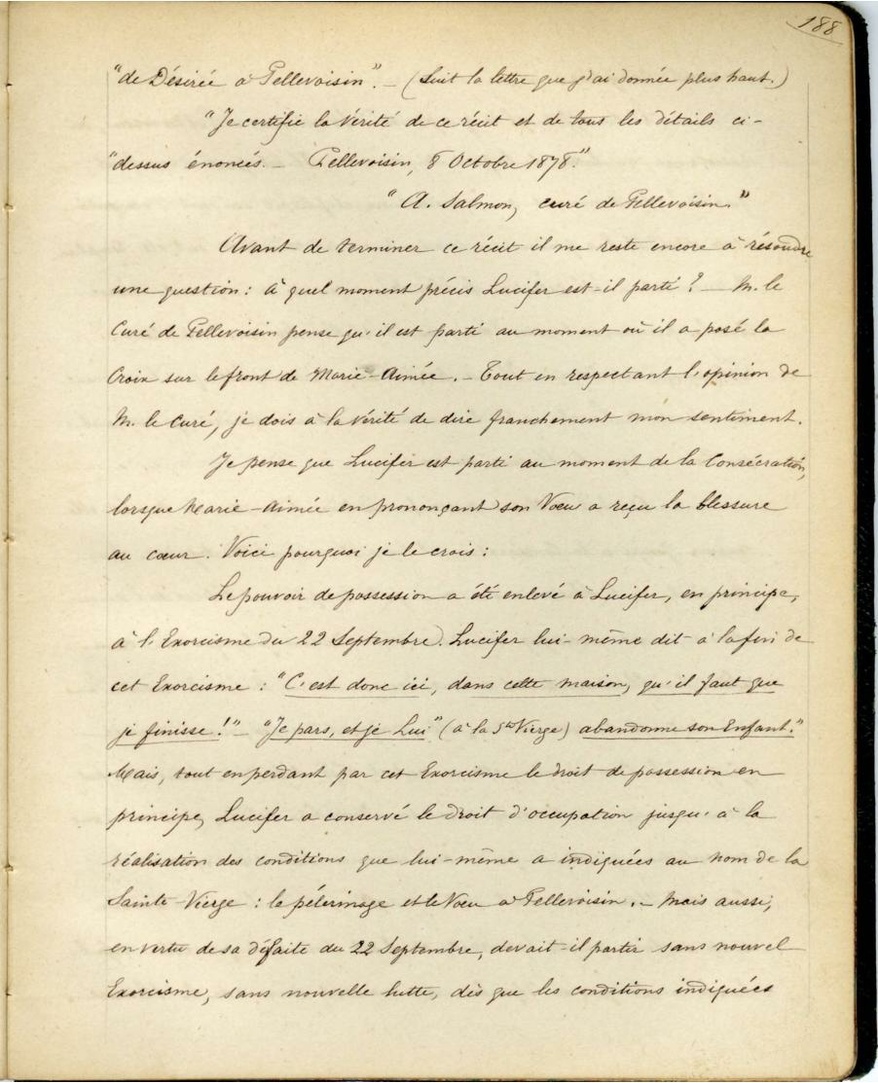 188
"de Désirée à Pellevoisin". — (Suit la lettre que j'ai donnée plus haut.)
"Je certifie la vérité de ce récit et de tous les détails ci-
"dessus énoncés. — Pellevoisin, 8 Octobre 1878."
"A. Salmon, curé de Pellevoisin."
Avant de terminer ce récit il me reste encore à résoudre
une question : à quel moment précis Lucifer est-il parti ? — M. le
Curé de Pellevoisin pense qu'il est parti au moment où il a posé la
Croix sur le front de Marie-Aimée. — Tout en respectant l'opinion de
M. le Curé, je dois à la vérité de dire franchement mon sentiment.
Je pense que Lucifer est parti au moment de la Consécration,
lorsque Marie-Aimée en prononçant son Vœu a reçu la blessure
au cœur. Voici pourquoi je le crois :
Le pouvoir de possession a été enlevé à Lucifer, en principe,
à l'Exorcisme du 22 Septembre. Lucifer lui-même dit à la fin de
cet Exorcisme : "C'est donc ici, dans cette maison, qu'il faut que
je finisse !" — "Je pars, et je Lui" (à la Ste Vierge) abandonne son Enfant."
Mais, tout en perdant par cet Exorcisme le droit de possession en
principe, Lucifer a conservé le droit d'occupation jusqu'à la
réalisation des conditions que lui-même a indiquées au nom de la
Sainte-Vierge : le pélerinage et le Vœu à Pellevoisin. — Mais aussi,
en vertu de sa défaite du 22 Septembre, devait-il partir sans nouvel
Exorcisme, sans nouvelle lutte, dès que les conditions indiquées